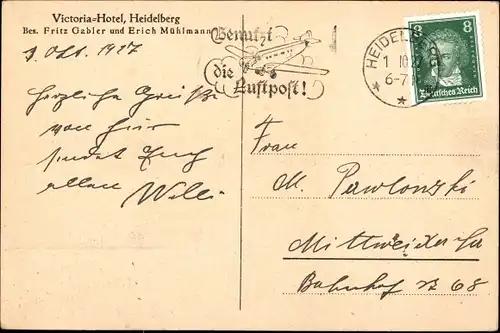 Victoria=Hotel, Heidelberg
Bes. Fritz Gabler und Erich Mühlmann
1. Okt. 1927
Herzliche Grüße
von hier
sendet Euch
allen Willi
Benutzt
die
Luftpost!
HEIDEL
1 10 27
6-7
8 8
Deutsches Reich
Frau
M. Pawlonzki
Mittweida Sa
Bahnhof 68